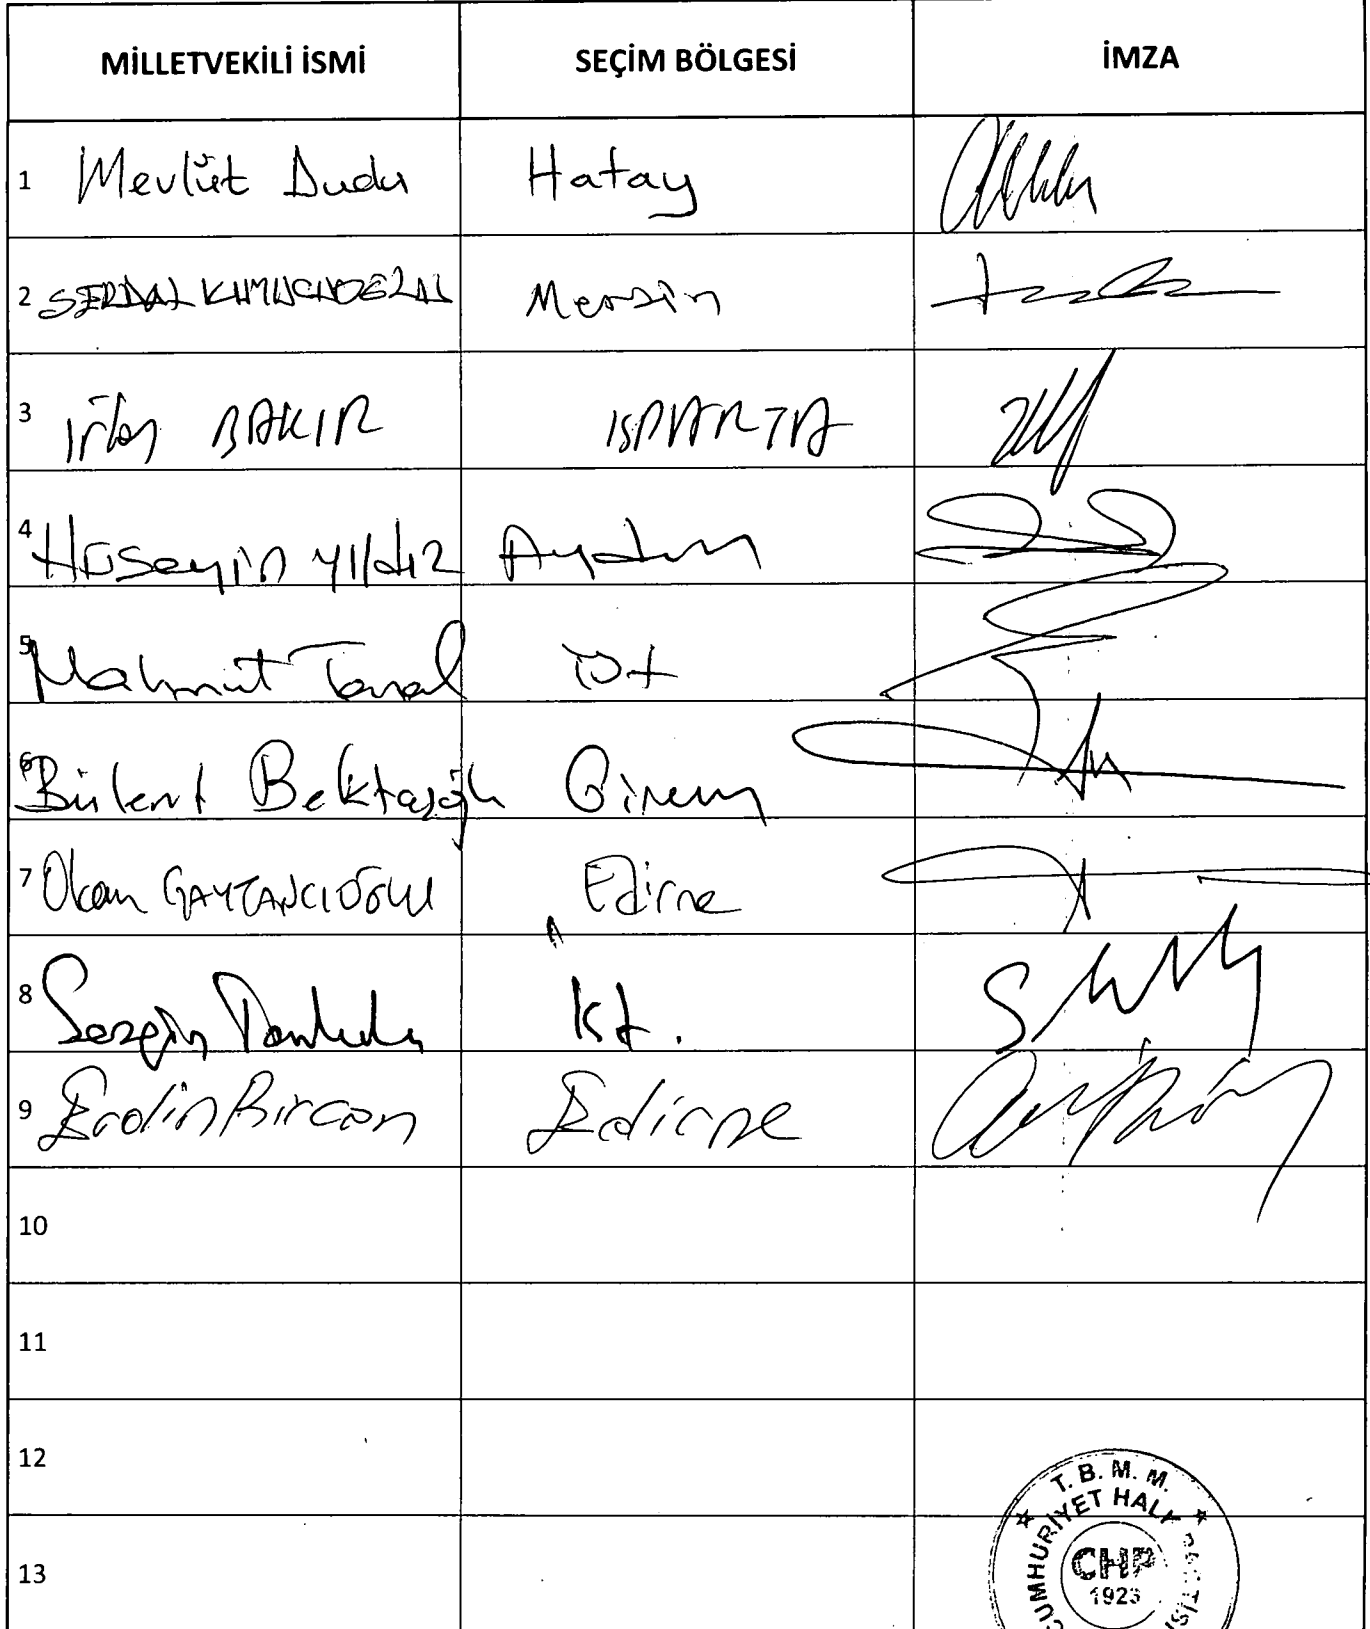 MİLLETVEKİLİ İSMİ SEÇİM BÖLGESİ İMZA
1 Mevlüt Dudu Hatay
2 SERDAL KUYUCUOĞLU Mersin
3 İrfan BAKIR ISPARTA
4 Hüseyin Yıldız Aydın
5 Mahmut Tanal İst
6 Bülent Bektaşoğlu Giresun
7 Okan GAYTANCIOĞLU Edirne
8 Sezgin Tanrıkulu İst.
9 Erdin Bircan Edirne
10
11
12
13
T. B. M. M.
CUMHURİYET HALK PARTİSİ
CHP
1923